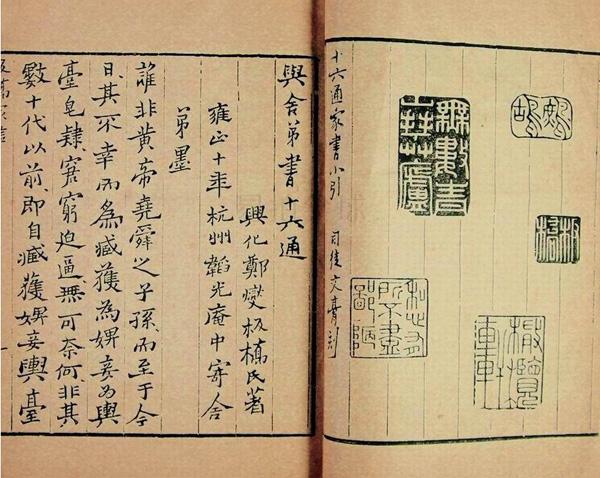 鷓鴣
無數青山拜草廬
橄欖軒
私心有所不盡鄙陋
十六通家書小引 司徒文膏刻
與舍弟書十六通
興化鄭燮板橋氏著
雍正十年杭州韜光庵中寄舍
弟墨
誰非黃帝堯舜之子孫而至于今
日其不幸而為臧獲為婢妾為輿
臺皂隸窘窮迫逼無可奈何非其
數十代以前即自臧獲婢妾輿臺